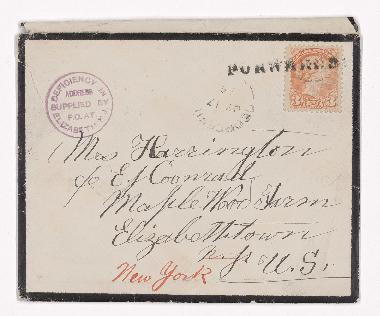 FORWARDED
DEFICIENCY IN
ADDRESS
SUPPLIED BY
P.O. AT
ELIZABETH N.J.
Mrs Harrington
c/o E J Conrad
Maple Wood Farm
Elizabethtown
N. J.
New York
U.S.